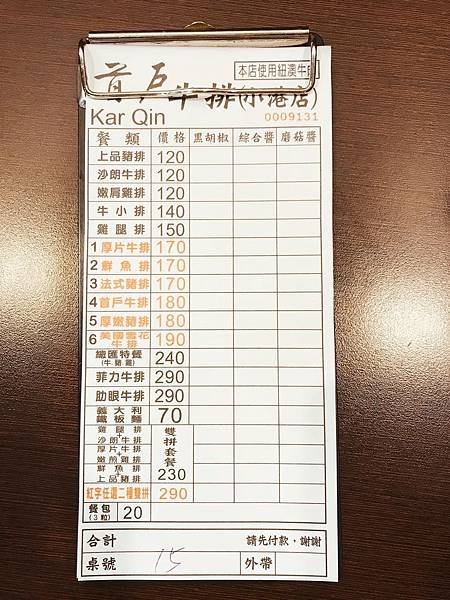 本店使用紐澳牛
首戶牛排(小港店)
Kar Qin
0009131
餐類 價格 黑胡椒 綜合醬 磨菇醬
上品豬排 120
沙朗牛排 120
嫩肩雞排 120
牛小排 140
雞腿排 150
1厚片牛排 170
2鮮魚排 170
3法式豬排 170
4首戶牛排 180
5厚嫩豬排 180
6美國雪花牛排 190
總匯特餐(牛.豬.雞) 240
菲力牛排 290
肋眼牛排 290
義大利鐵板麵 70
雞腿排+沙朗牛排
厚片牛排+嫩煎雞排
鮮魚排+上品豬排
雙拼套餐 230
紅字任選二種雙拼 290
餐包(3粒) 20
合計 請先付款,謝謝
桌號 15 外帶